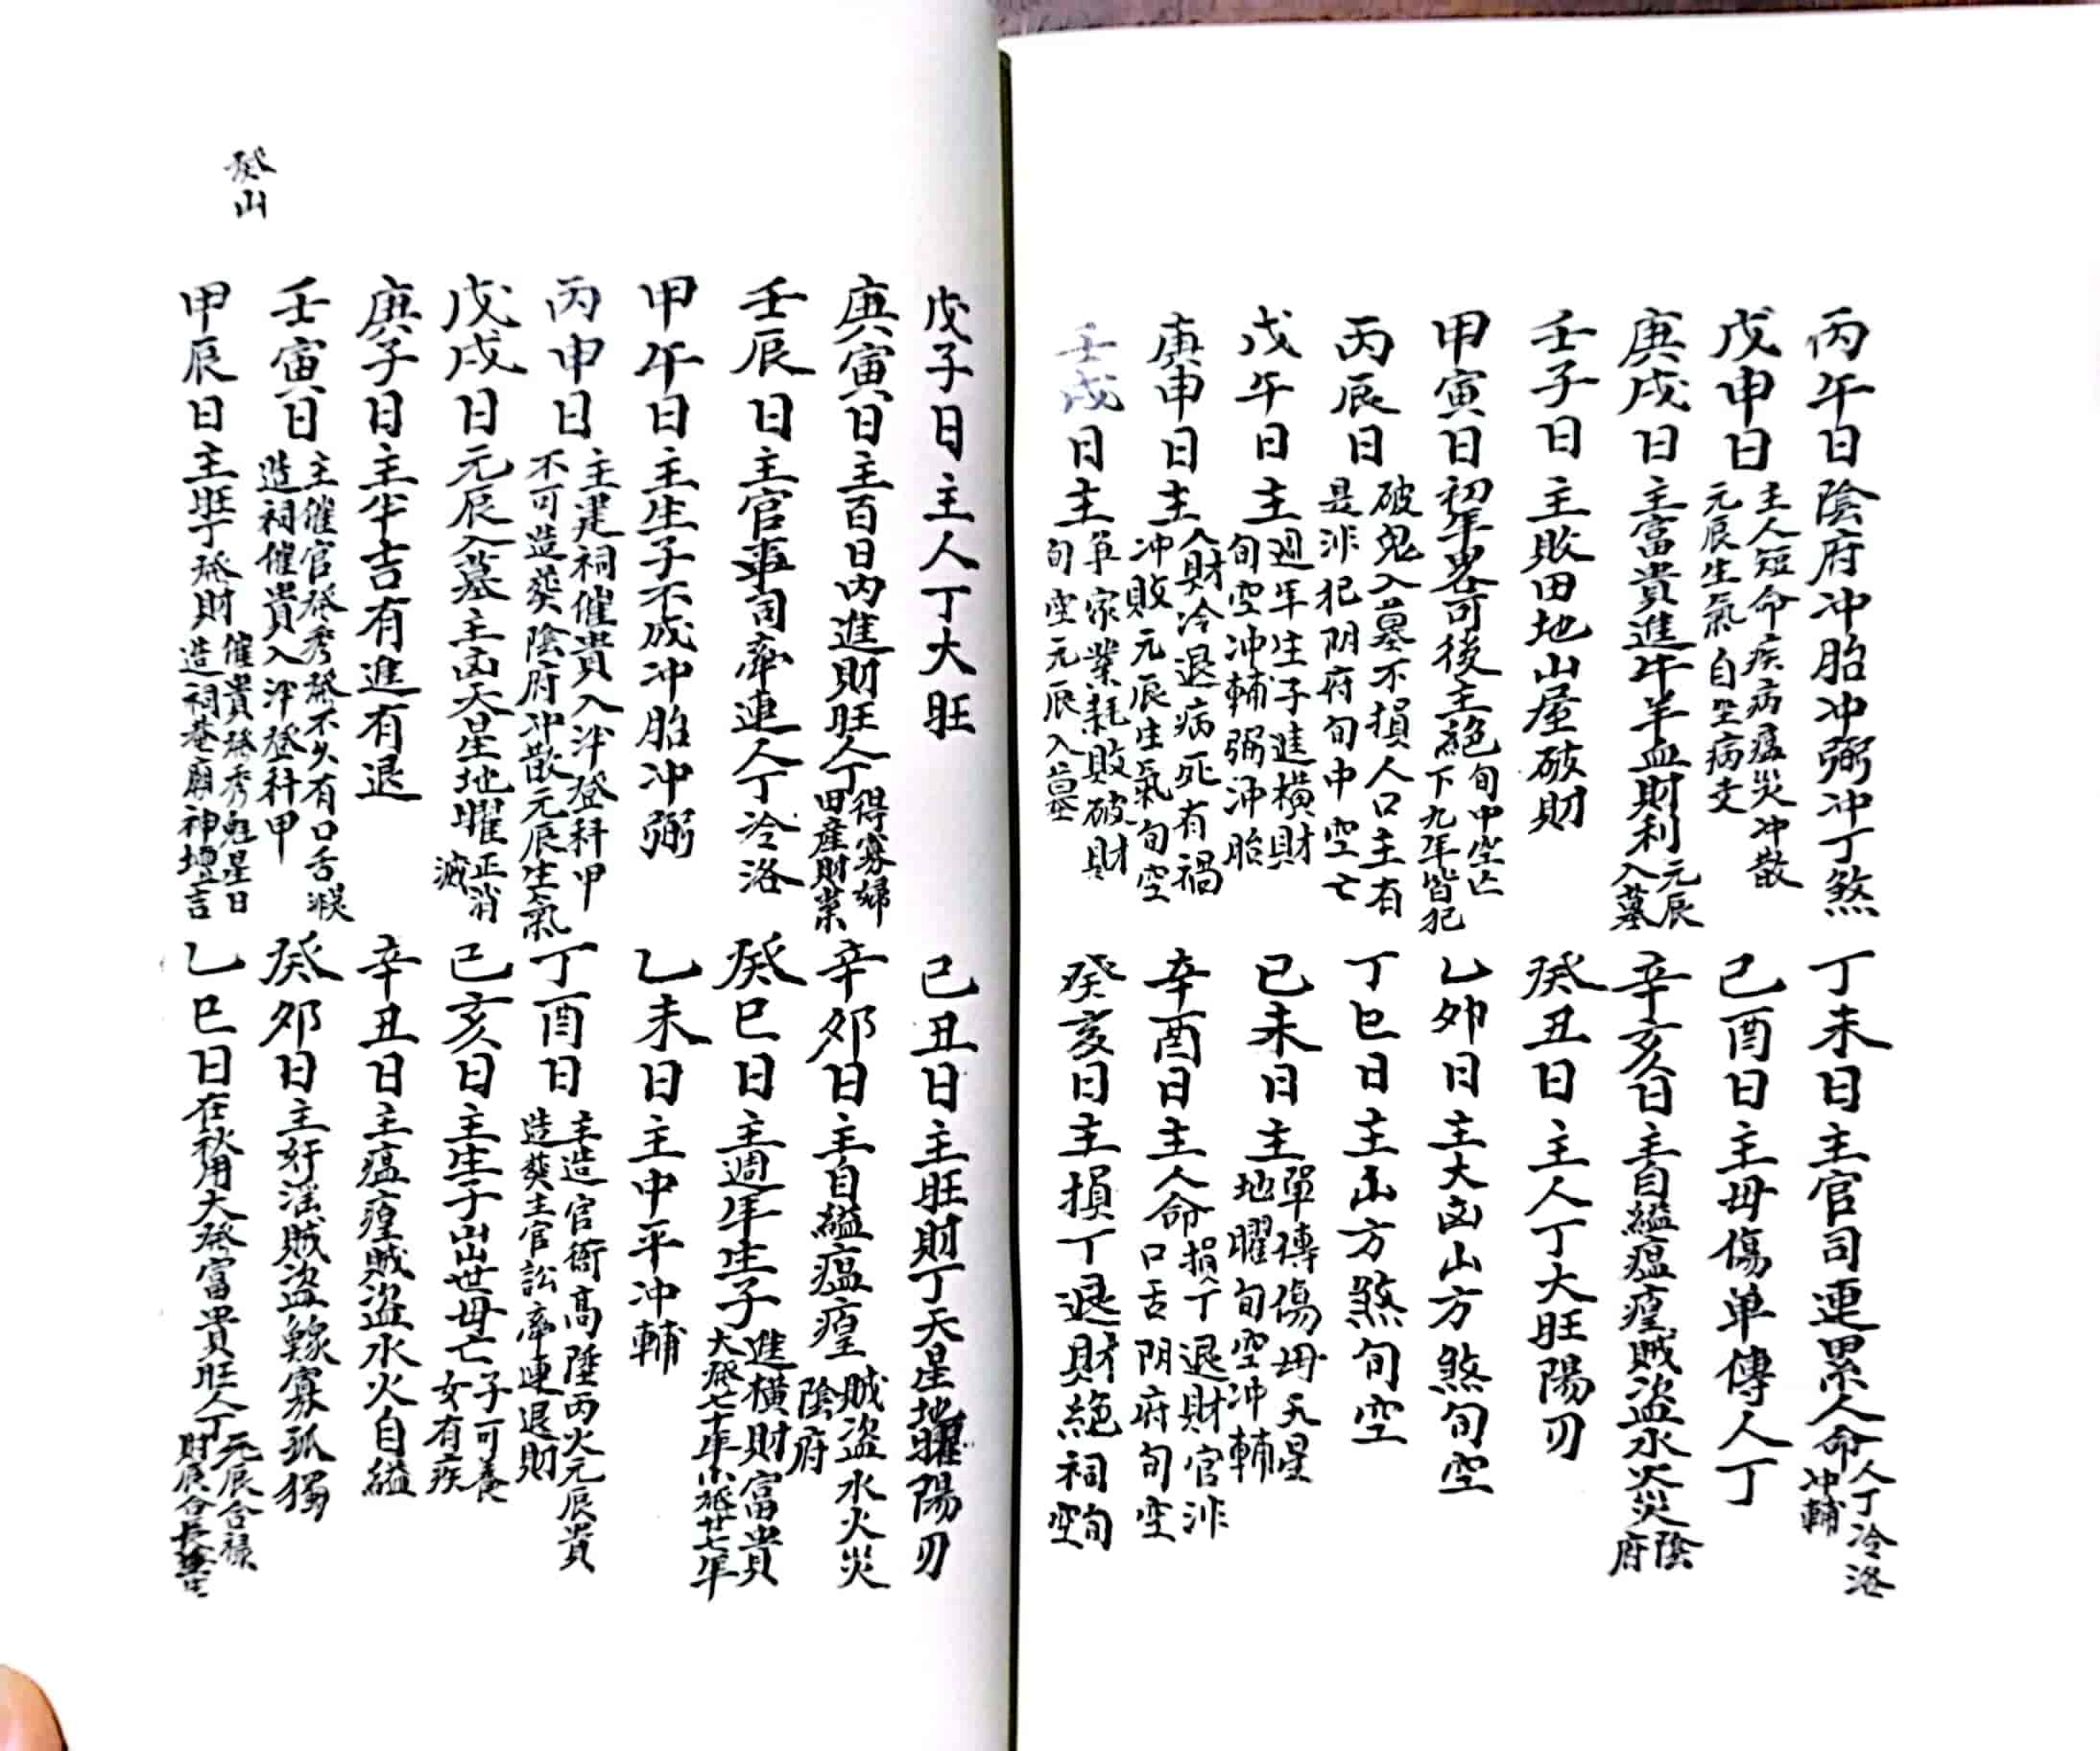 丙午日陰府冲胎冲弼冲丁煞
丁未日主官司連累人命人丁冷落冲輔
戊申日主人短命疾病瘟災冲散元辰生氣自坐病支
己酉日主母傷单傳人丁
庚戌日主富貴進牛羊血財利元辰入墓
辛亥日主自縊瘟瘟賊盜水火災陰府
壬子日主敗田地山屋破財
癸丑日主人丁大旺陽刃
甲寅日初年畧可後主絕旬中空亡下九年皆犯
乙夘日主大凶山方煞旬空
丙辰日破鬼入墓不損人口主有是非犯阴府旬中空亡
丁巳日主山方煞旬空
戊午日主週年生子進橫財旬空冲輔弼冲胎
己未日主單傳傷母天星地曜旬空冲輔
庚申日主人財冷退病死有禍冲敗元辰生氣旬空
辛酉日主人命損人丁退財官非口舌阴府旬空
壬戌日主争家業耗敗破財旬空元辰入墓
癸亥日主損丁退財絕祠旬空
戊子日主人丁大旺
己丑日主旺財丁天星地曜陽刃
庚寅日主百日內進財旺人丁得寡婦田產財業
辛夘日主自縊瘟瘟賊盜水火災陰府
壬辰日主官事司牽連人丁冷洛
癸巳日主週年生子進橫財富貴大發七十年小發廿七年
甲午日主生子不成冲胎冲弼
乙未日主中平冲輔
丙申日主建祠催貴入泮登科甲不可造葵陰府冲散元辰生氣
丁酉日主造官衙高陞丙火元辰貴造葵主官訟牽連退財
戊戌日元辰入墓主凶天星地曜正消滅
己亥日主生子出世母亡子可養女有疾
庚子日主半吉有進有退
辛丑日主瘟瘟賊盜水火自縊
壬寅日主催官發秀發不久有口舌造祠催貴入泮登科甲
癸夘日主奸淫賊盜鰥寡孤獨
甲辰日主旺丁發財催貴發秀魁星日造祠菴廟神壇吉
乙巳日在秋用大發富貴旺人丁元辰合祿財辰合長
癸山